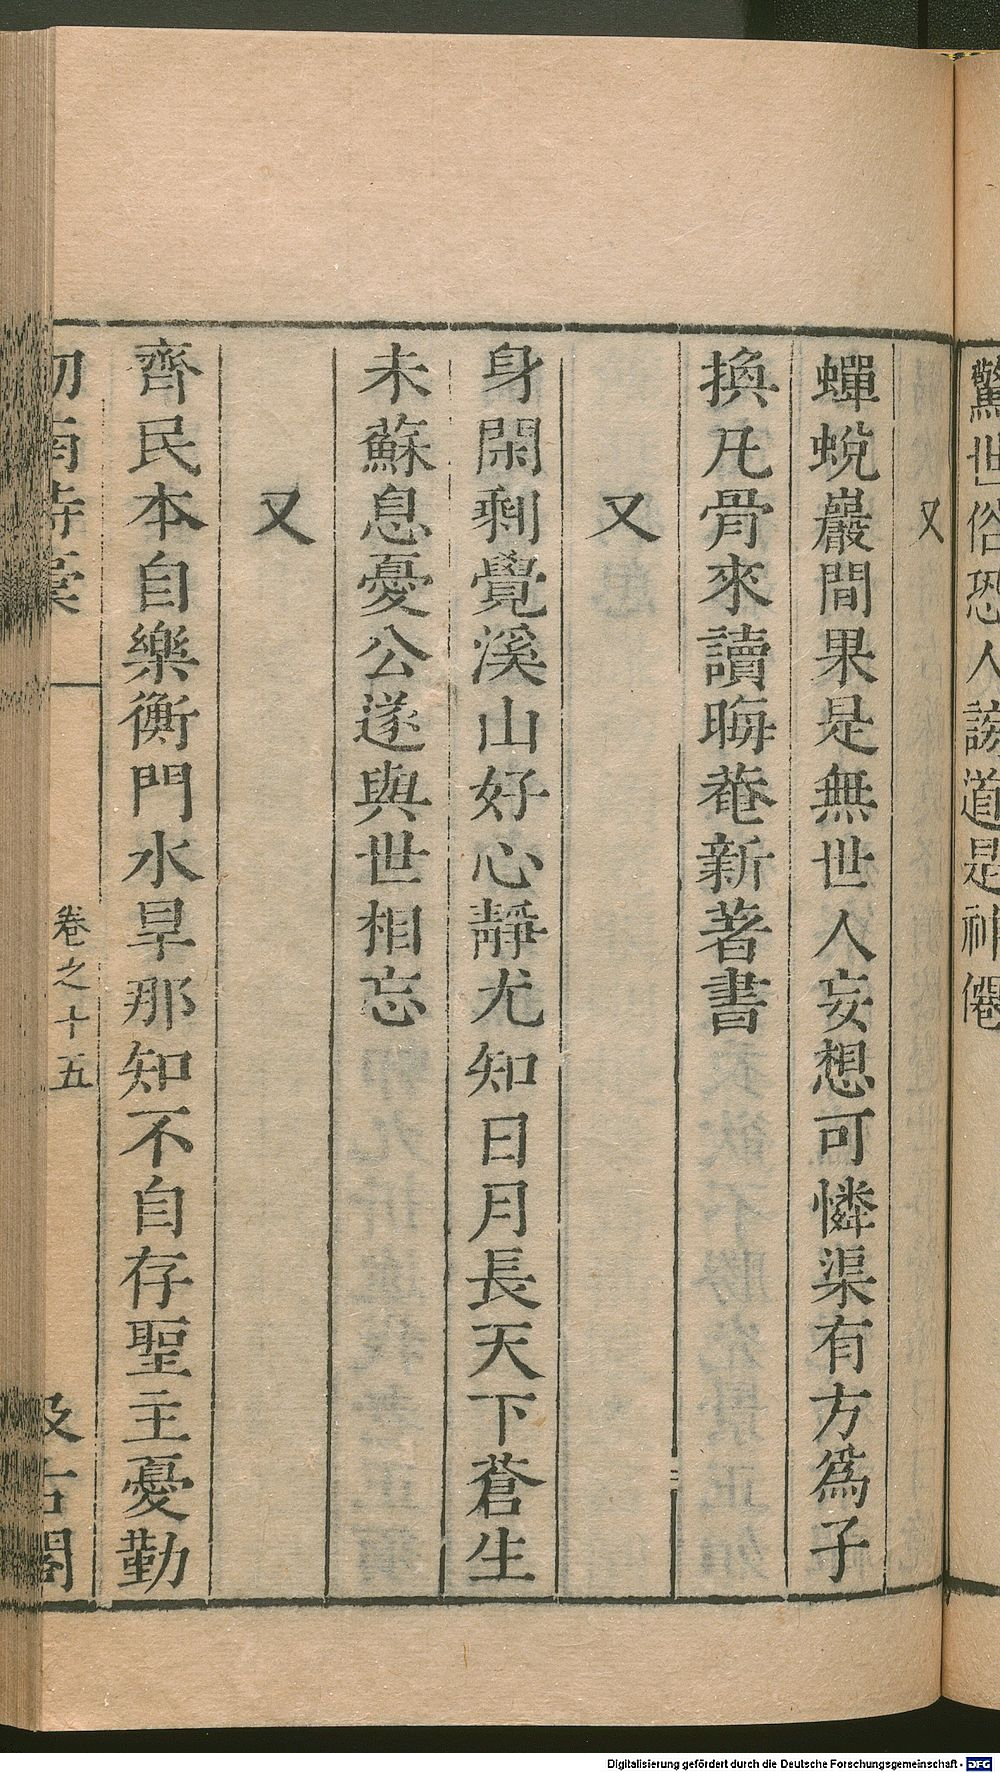 驚世俗恐人謗道是神僊
又
蟬蛻巖間果是無世人妄想可憐渠有方爲子
換凡骨來讀晦菴新著書
又
身閑剩覺溪山好心靜尤知日月長天下蒼生
未蘇息憂公遂與世相忘
又
齊民本自樂衡門水旱那知不自存聖主憂勤
劒南詩稾 卷之十五 汲古閣
Digitalisierung gefördert durch die Deutsche Forschungsgemeinschaft - DFG